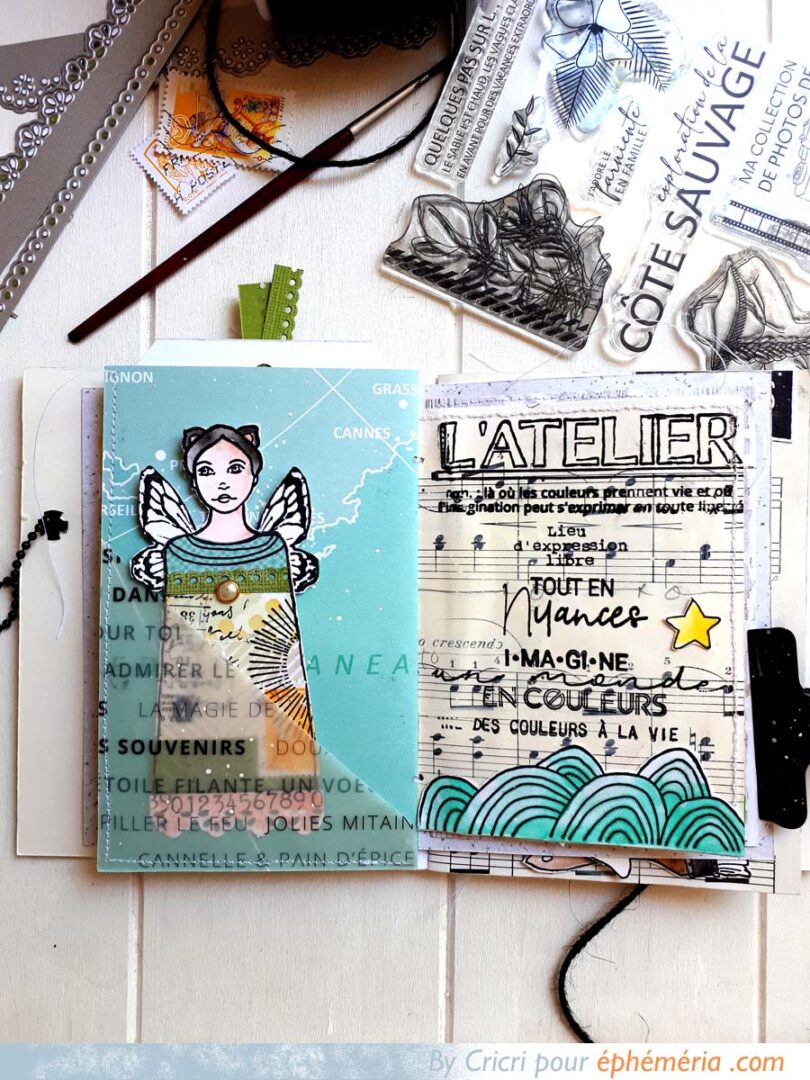 QUELQUES PAS SUR L
LE SABLE EST CHAUD, LES VAGUES CLA
EN AVANT POUR DES VACANCES EXTRAORD
J'ADORE LE
farniente
EN FAMILLE!
exploration de la
CÔTE SAUVAGE
MA COLLECTION
DE PHOTOS DE
A POSTE
IGNON
GRASS
CANNES
P
ARSEIL
S
DAN
OUR TOI
ADMIRER LE
ANEA
LA MAGIE DE
S SOUVENIRS DOU
ÉTOILE FILANTE, UN VOE
01234567890
FILLER LE FEU, JOLIES MITAIN
CANNELLE & PAIN D'ÉPICE
L'ATELIER
nom. : là où les couleurs prennent vie et où
l'imagination peut s'exprimer en toute liberté
Lieu
d'expression
libre
TOUT EN
Nuances
o crescendo
I•MA•GI•NE
un monde
EN COULEURS
DES COULEURS À LA VIE
By Cricri pour éphéméria .com